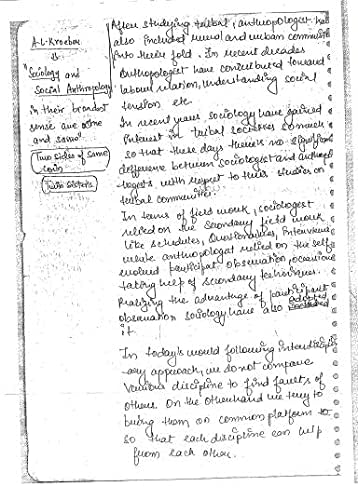 A.L. Kroeber
"Sociology and
Social Anthropology
in their broadest
sense are one
and same".
Two sides of same
coin
Twin sisters
After studying tribal, anthropologist has
also included rural and urban communities
into their fold. In recent decades
Anthropologist have contributed toward
labour relation, understanding social
tension etc.
In recent years sociology have gained
interest in tribal societies so much
so that these days there is no significant
difference between sociologist and anthropo
logists with respect to their studies on
tribal communities.
In terms of field work, sociologist
relied on the secondary field work
like schedules, Questionaries, Interviews
while anthropologist relied on the self
evolved participal observation, occasionally
taking help of secondary techniques.
Realizing the advantage of participant
observation sociology have also adopted
it.
In today's would following interdisciplin
ary approach, we do not compare
various discipline to find faults of
others. On the otherhand we try to
bring them on common platform to
so that each discipline can help
from each other.